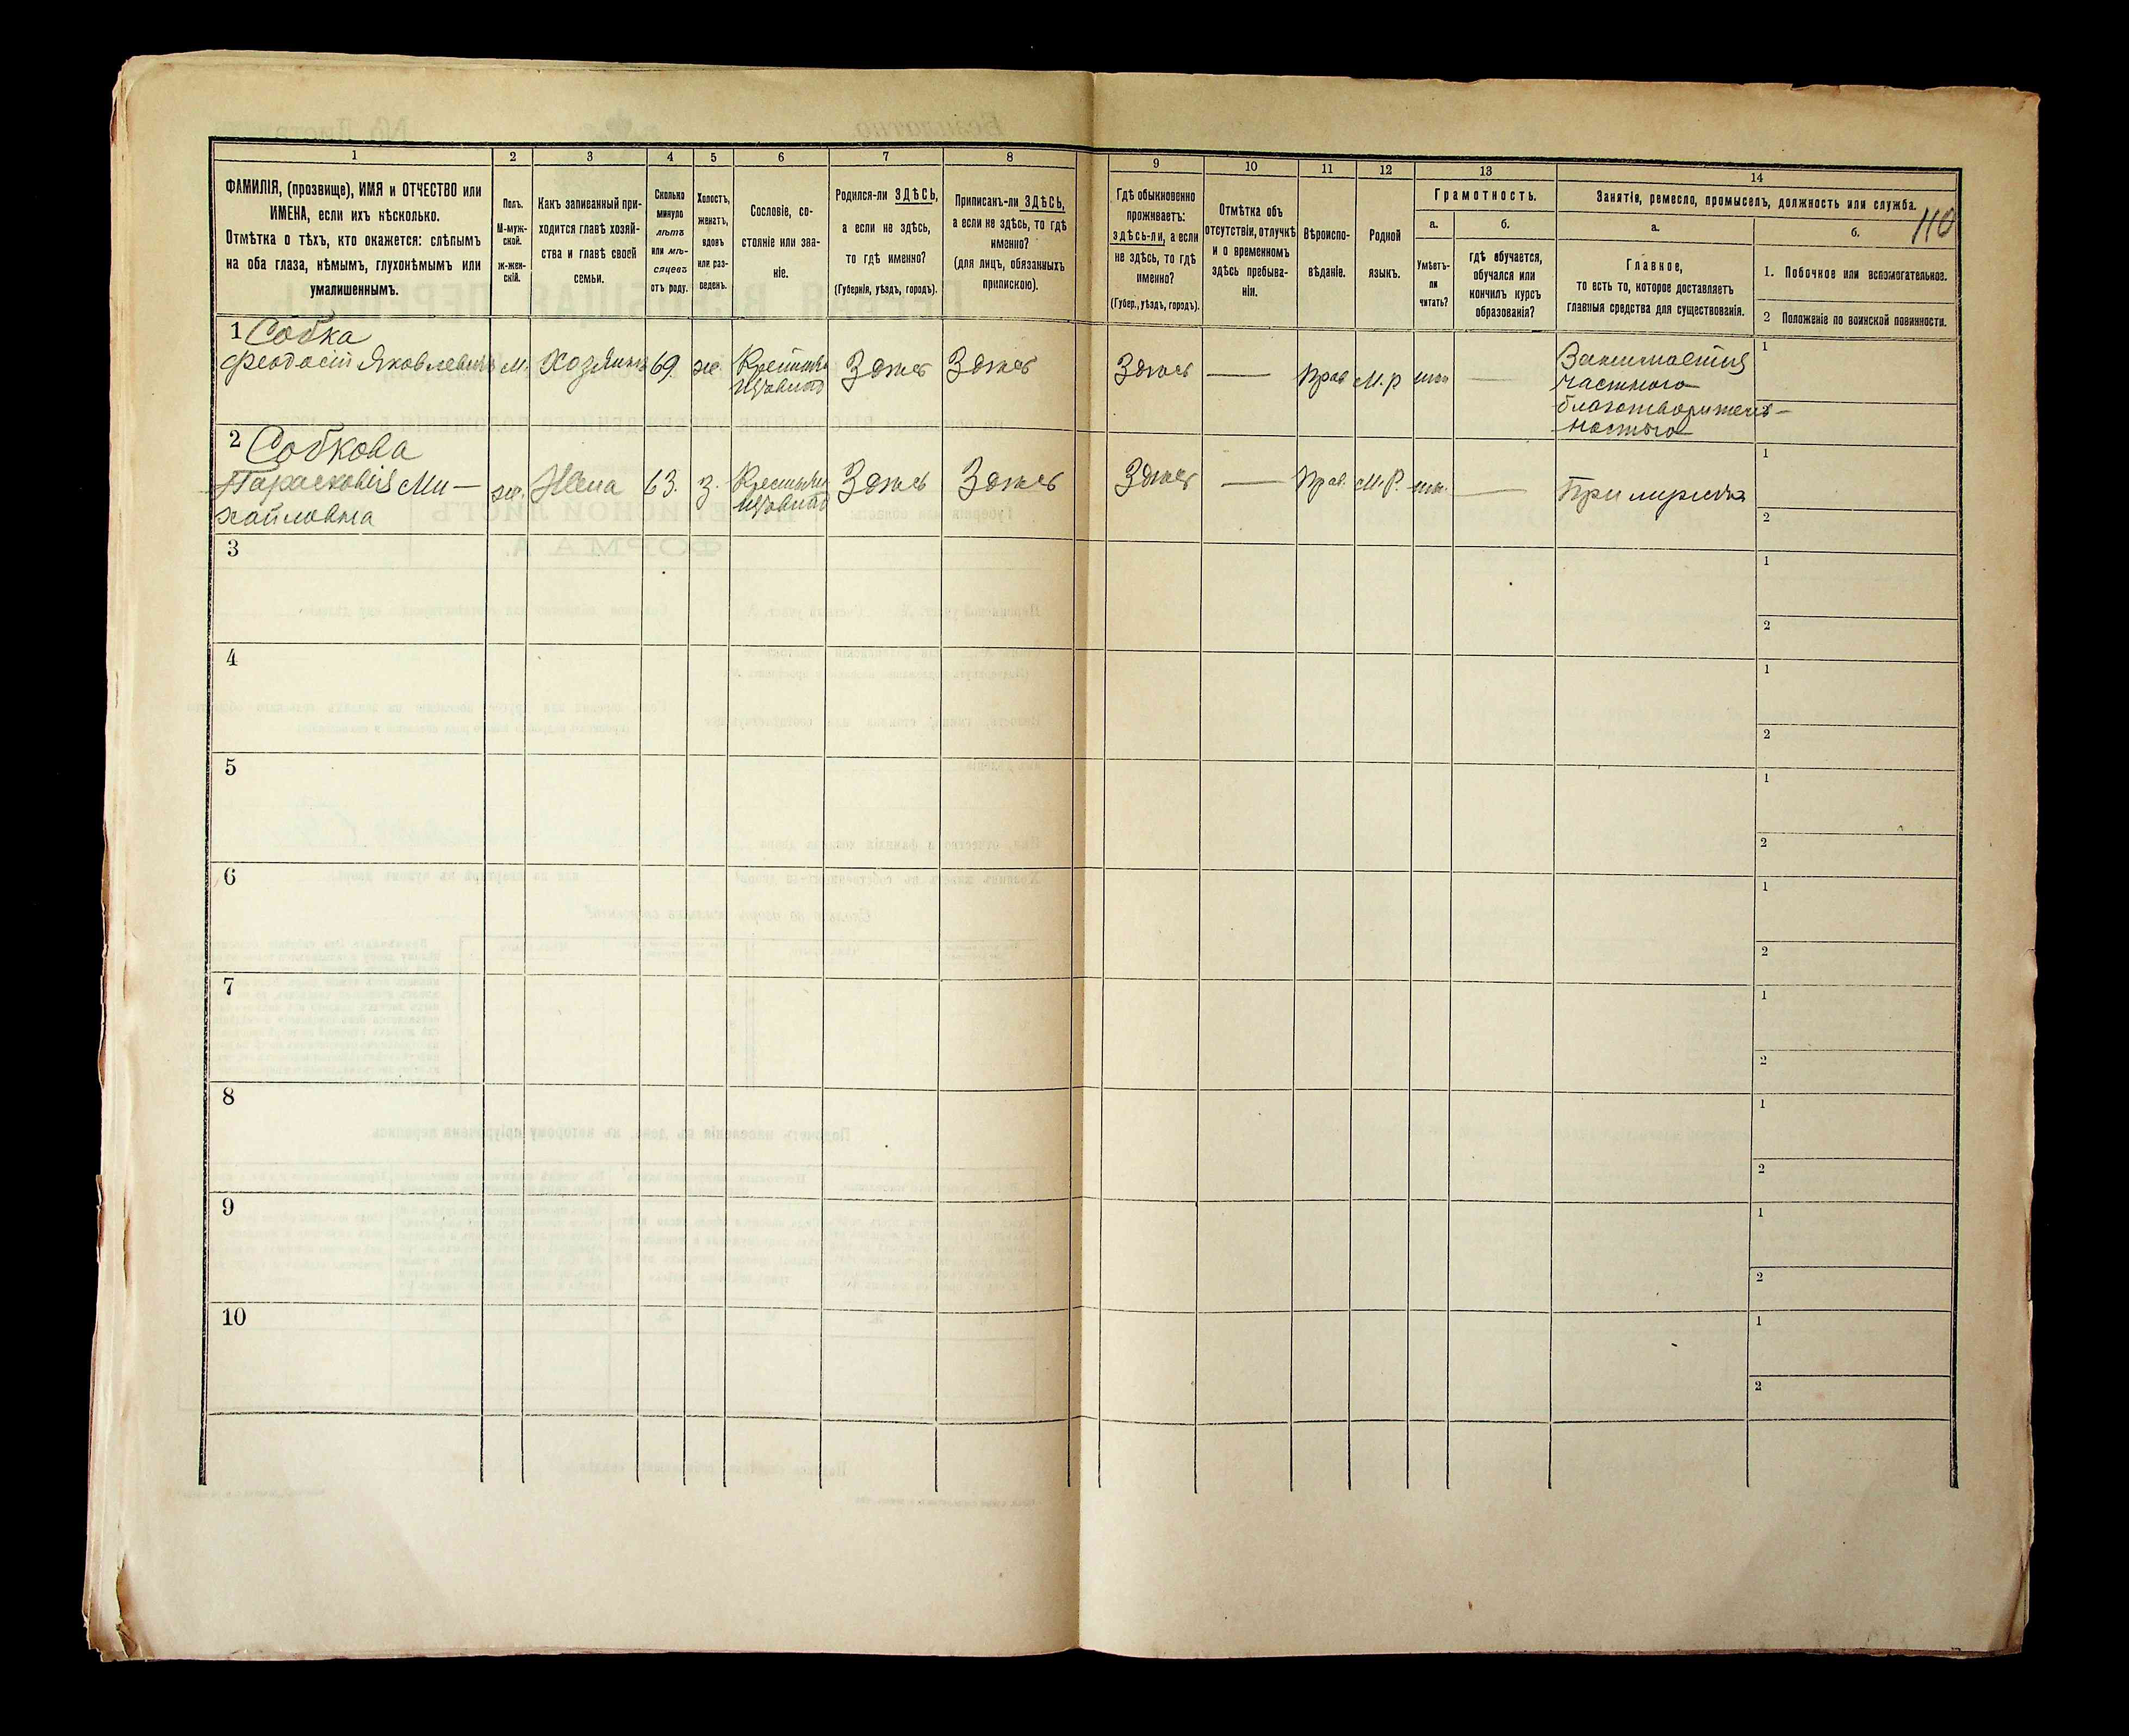 1 2 3 4 5 6 7 8 9 10 11 12 13 14
ФАМИЛІЯ, (прозвище), ИМЯ и ОТЧЕСТВО или
ИМЕНА, если ихъ нѣсколько.
Отмѣтка о тѣхъ, кто окажется: слѣпымъ
на оба глаза, нѣмымъ, глухонѣмымъ или
умалишеннымъ.
Полъ.
М-муж-
ской.
ж-жен-
скій.
Какъ записанный при-
ходится главѣ хозяй-
ства и главѣ своей
семьи.
Сколько
минуло
лѣтъ
или мѣ-
сяцевъ
отъ роду.
Холостъ,
женатъ,
вдовъ
или раз-
веденъ.
Сословіе, со-
стояніе или зва-
ніе.
Родился-ли ЗДѢСЬ,
а если не здѣсь,
то гдѣ именно?
(Губернія, уѣздъ, городъ).
Приписанъ-ли ЗДѢСЬ,
а если не здѣсь, то гдѣ
именно?
(для лицъ, обязанныхъ
припискою).
Гдѣ обыкновенно
проживаетъ:
здѣсь-ли, а если
не здѣсь, то гдѣ
именно?
(Губер., уѣздъ, городъ).
Отмѣтка объ
отсутствіи, отлучкѣ
и о временномъ
здѣсь пребыва-
ніи.
Вѣроиспо-
вѣданіе.
Родной
языкъ.
Грамотность.
а.
Умѣетъ-
ли
читать?
б.
гдѣ обучается,
обучался или
кончилъ курсъ
образованія?
Занятія, ремесло, промыселъ, должность или служба.
110
а.
Главное,
то есть то, которое доставляетъ
главныя средства для существованія.
б.
1. Побочное или вспомогательное.
2 Положеніе по воинской повинности.
1 Собка
Феодосій Яковлевичъ М. Хозяинъ 69 ж. Здѣсь Здѣсь Здѣсь — Прав М.р — 1
частного
благотворитель-
ностью 2
2 Собкова
Парасковія Ми-
хайловна ж. Жена 63. З. Здѣсь Здѣсь Здѣсь — Прав. М.Р. — При 1
2
3 1
2
4 1
2
5 1
2
6 1
2
7 1
2
8 1
2
9 1
2
10 1
2